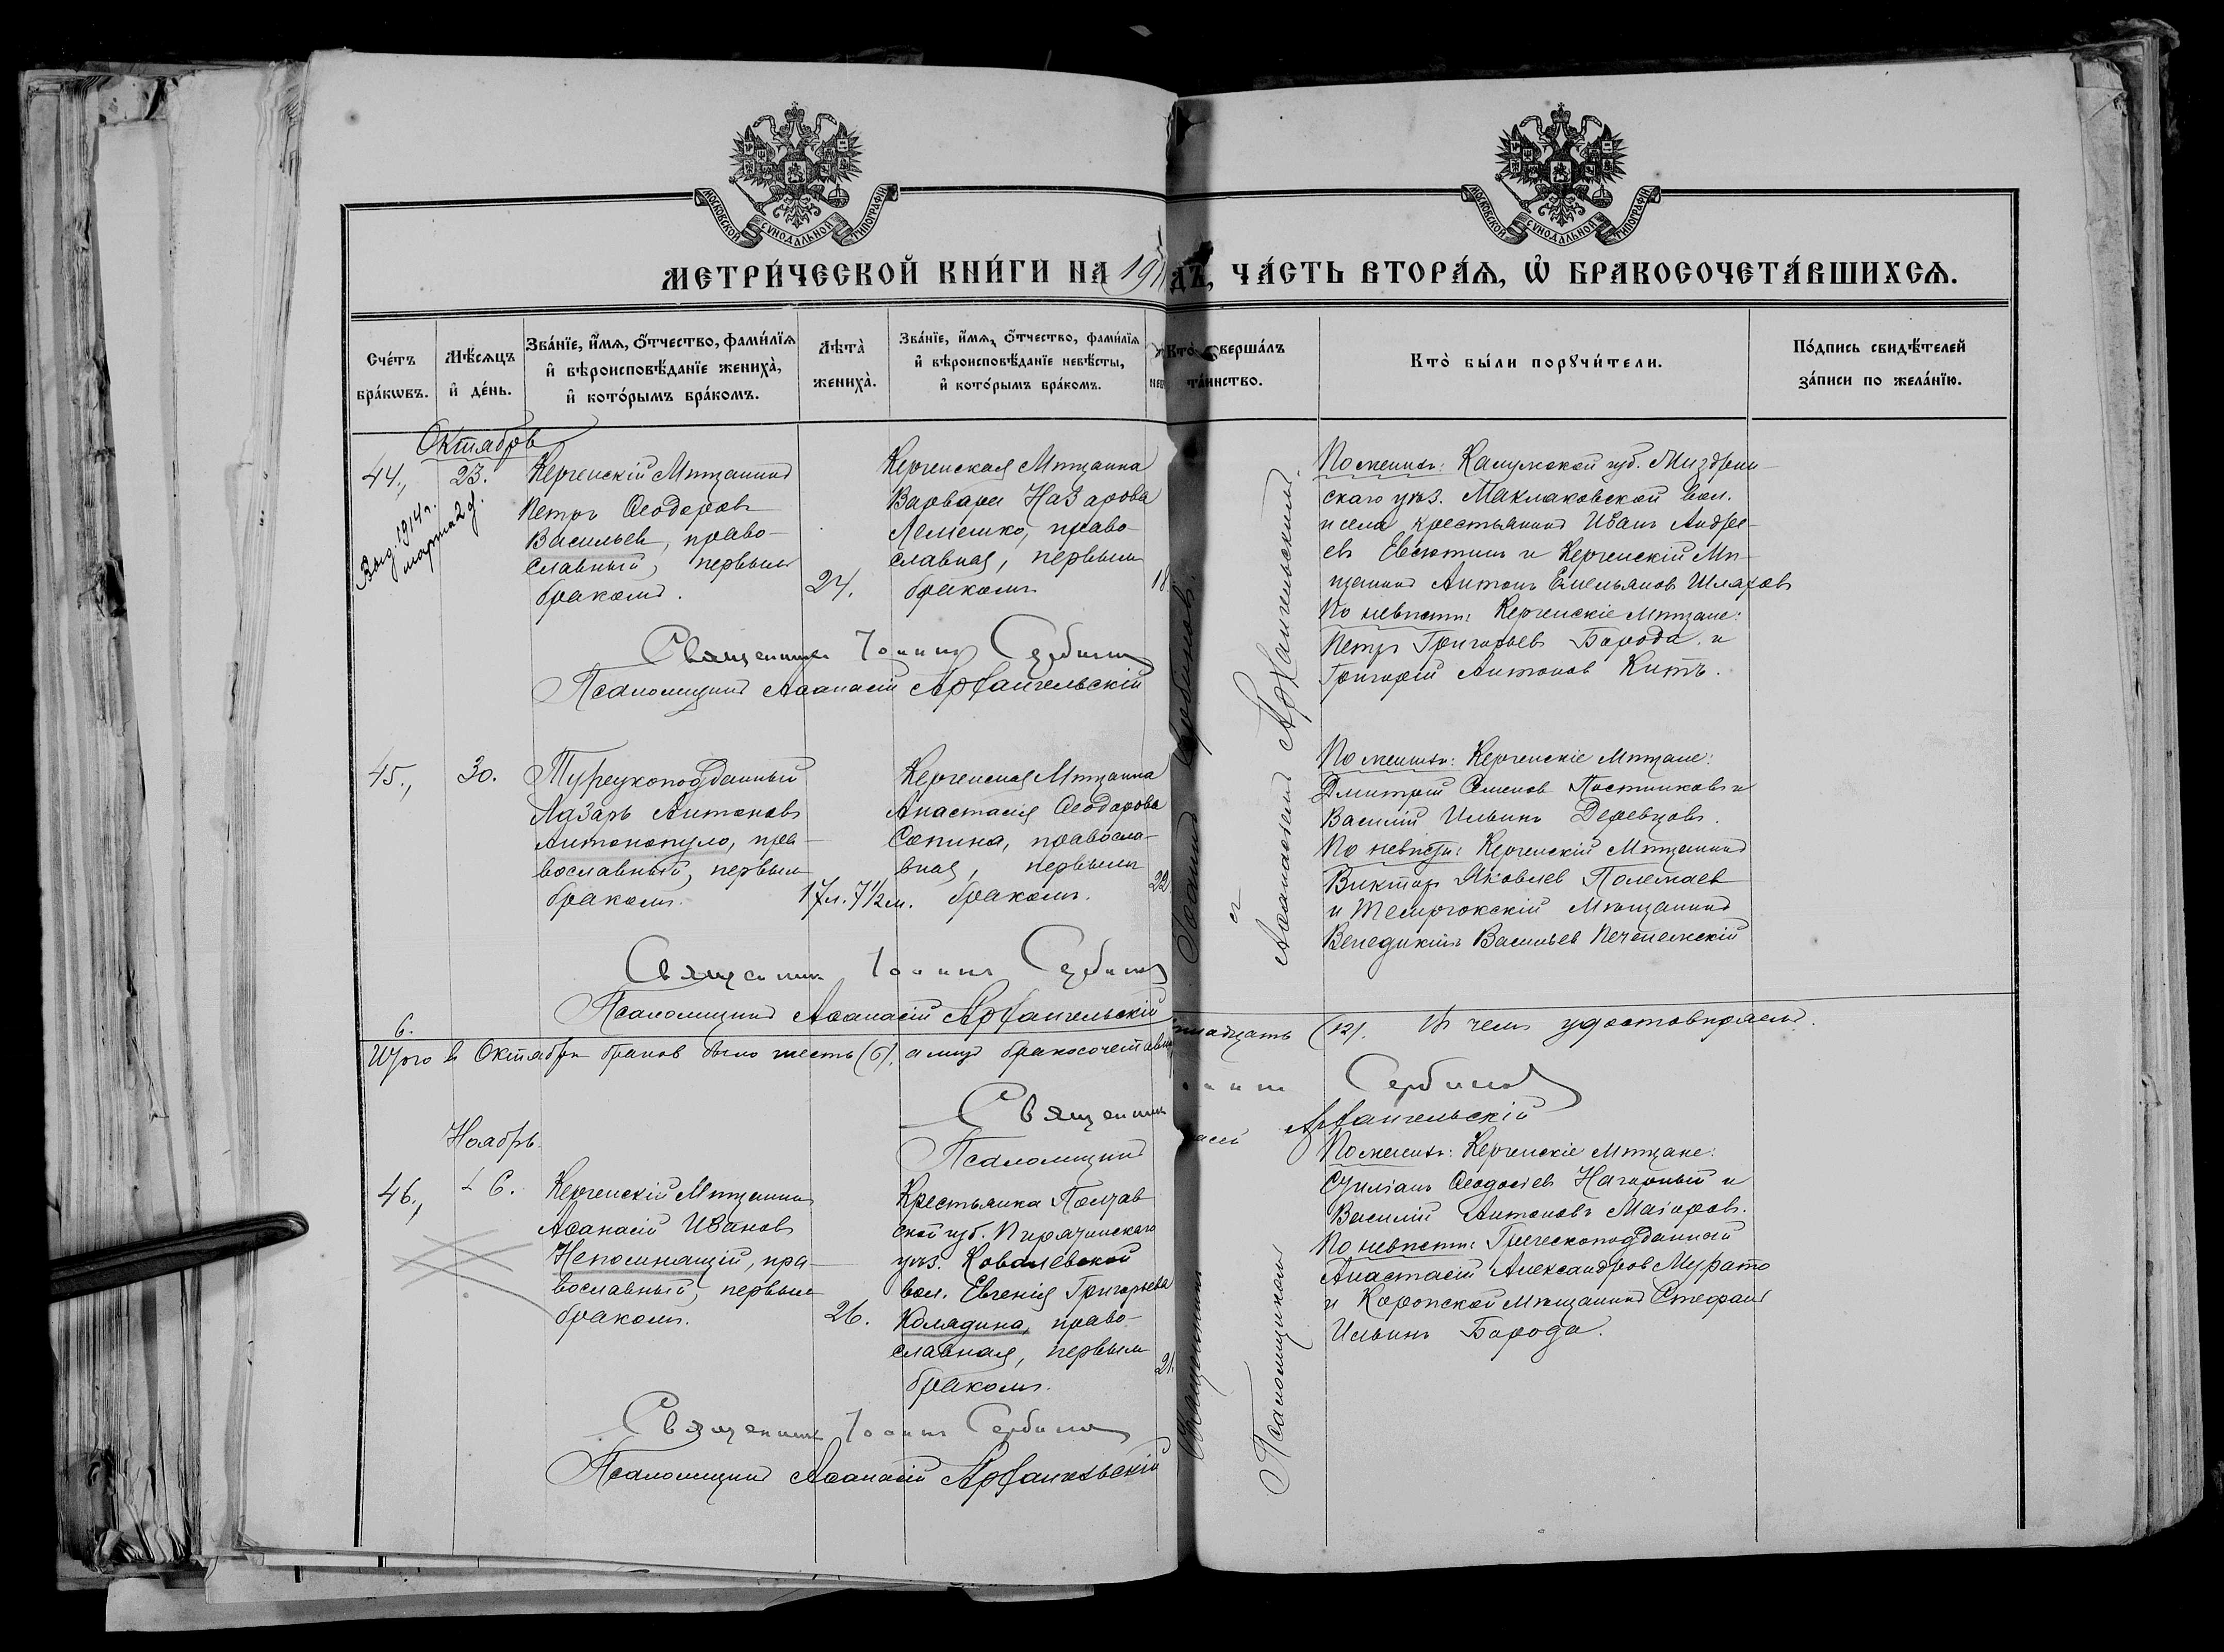 МОСКОВСКОЙ СѴНОДАЛЬНОЙ ТИПОГРАФІИ
МОСКОВСКОЙ СѴНОДАЛЬНОЙ ТИПОГРАФІИ
МЕТРИ́ЧЕСКОЙ КНИ́ГИ НА 191 ДЪ, ЧА́СТЬ ВТОРА́Ѧ, Ѡ҆ БРАКОСОЧЕТА́ВШИХСѦ.
Сче́тъ бра́кѡвъ.
Мѣ́сѧцъ и҆ де́нь.
Зва́нїе, и҆́мѧ, ѻ҆́тчество, фами́лїѧ
и҆ вѣроисповѣ́данїе жениха̀,
и҆ кото́рымъ бра́комъ.
Лѣта̀ жениха̀.
Зва́нїе, и҆́мѧ, ѻ҆́тчество, фами́лїѧ
и҆ вѣроисповѣ́данїе невѣ́сты,
и҆ кото́рымъ бра́комъ.
Кто̀ соверша́лъ
та́инство.
Кто̀ бы́ли порꙋчи́тели.
По́дпись свидѣ́телей
за́писи по жела́нїю.
Октябрь
44., 23.
Выд. 1914 г.
марта 2 д.
Керченскій Мѣщанинъ
Петръ Ѳеодоровъ
Васильев, право-
славный, первымъ
бракомъ.
24.
Керченская Мѣщанка
Варвара Назарова
Лемешко, право-
славная, первымъ
бракомъ
18.
По женихѣ: Калужской губ.
скаго уѣз. Маклаковской вол.
и села крестьянинъ Иванъ Андре-
евъ Евсютинъ и Керченскій Мѣ-
щанинъ Антонъ Емельянов Шляхов
По невѣстѣ: Керченскіе Мѣщане:
Петръ Григорьевъ Борода и
Григорій Антонов Китъ.
Священникъ Іоаннъ Сербиновъ
Псаломщикъ Аѳанасій Архангельскій
45., 30.
Турецкоподданный
Лазарь Антоновъ
Антонопуло, пра-
вославный, первымъ
бракомъ.
17 л. 7 1/2 м.
Керченская Мѣщанка
Анастасія Ѳеодорова
Сопина, правосла-
вная, первымъ
бракомъ.
22
По женихѣ: Керченскіе Мѣщане:
Дмитрій Семенов Постниковъ и
Василій Ильинъ Деревцовъ.
По невѣстѣ: Керченскій Мѣщанинъ
Викторъ Яковлев Полемаев
и Темрюкскій Мѣщанинъ
Венедиктъ Васильев
Священникъ Іоаннъ Сербиновъ
Псаломщикъ Аѳанасій Архангельскій
6.
Итого в Октябрѣ браков было шесть (6), а лицъ бракосочетавш надцать (12). В чемъ удостовѣряемъ.
Священникъ аннъ Сербиновъ
Псаломщикъ асій Архангельскій
Ноябрь
46., 6.
Керченскій Мѣщанинъ
Аѳанасій Иванов
Непомнящій, пра-
вославный, первымъ
бракомъ.
26.
Крестьянка Полтав
ской губ. Пирятинскаго
уѣз. Ковалевской
вол. Евгенія Григорьева
Колядина, право-
славная, первымъ
бракомъ.
21.
По женихѣ: Керченскіе мѣщане:
Ѳеодосіев Нагорный и
Василій Антоновъ Маіоровъ.
По невѣстѣ: Греческоподданный
Анастасій Александров Мурато
и Коропской мѣщанинъ Стефанъ
Ильинъ Борода.
Священникъ Іоаннъ Сербиновъ
Псаломщикъ Аѳанасій Архангельскій
Священникъ Іоаннъ Сербиновъ
съ
Псаломщикомъ Аѳанасіемъ Архангельскимъ.